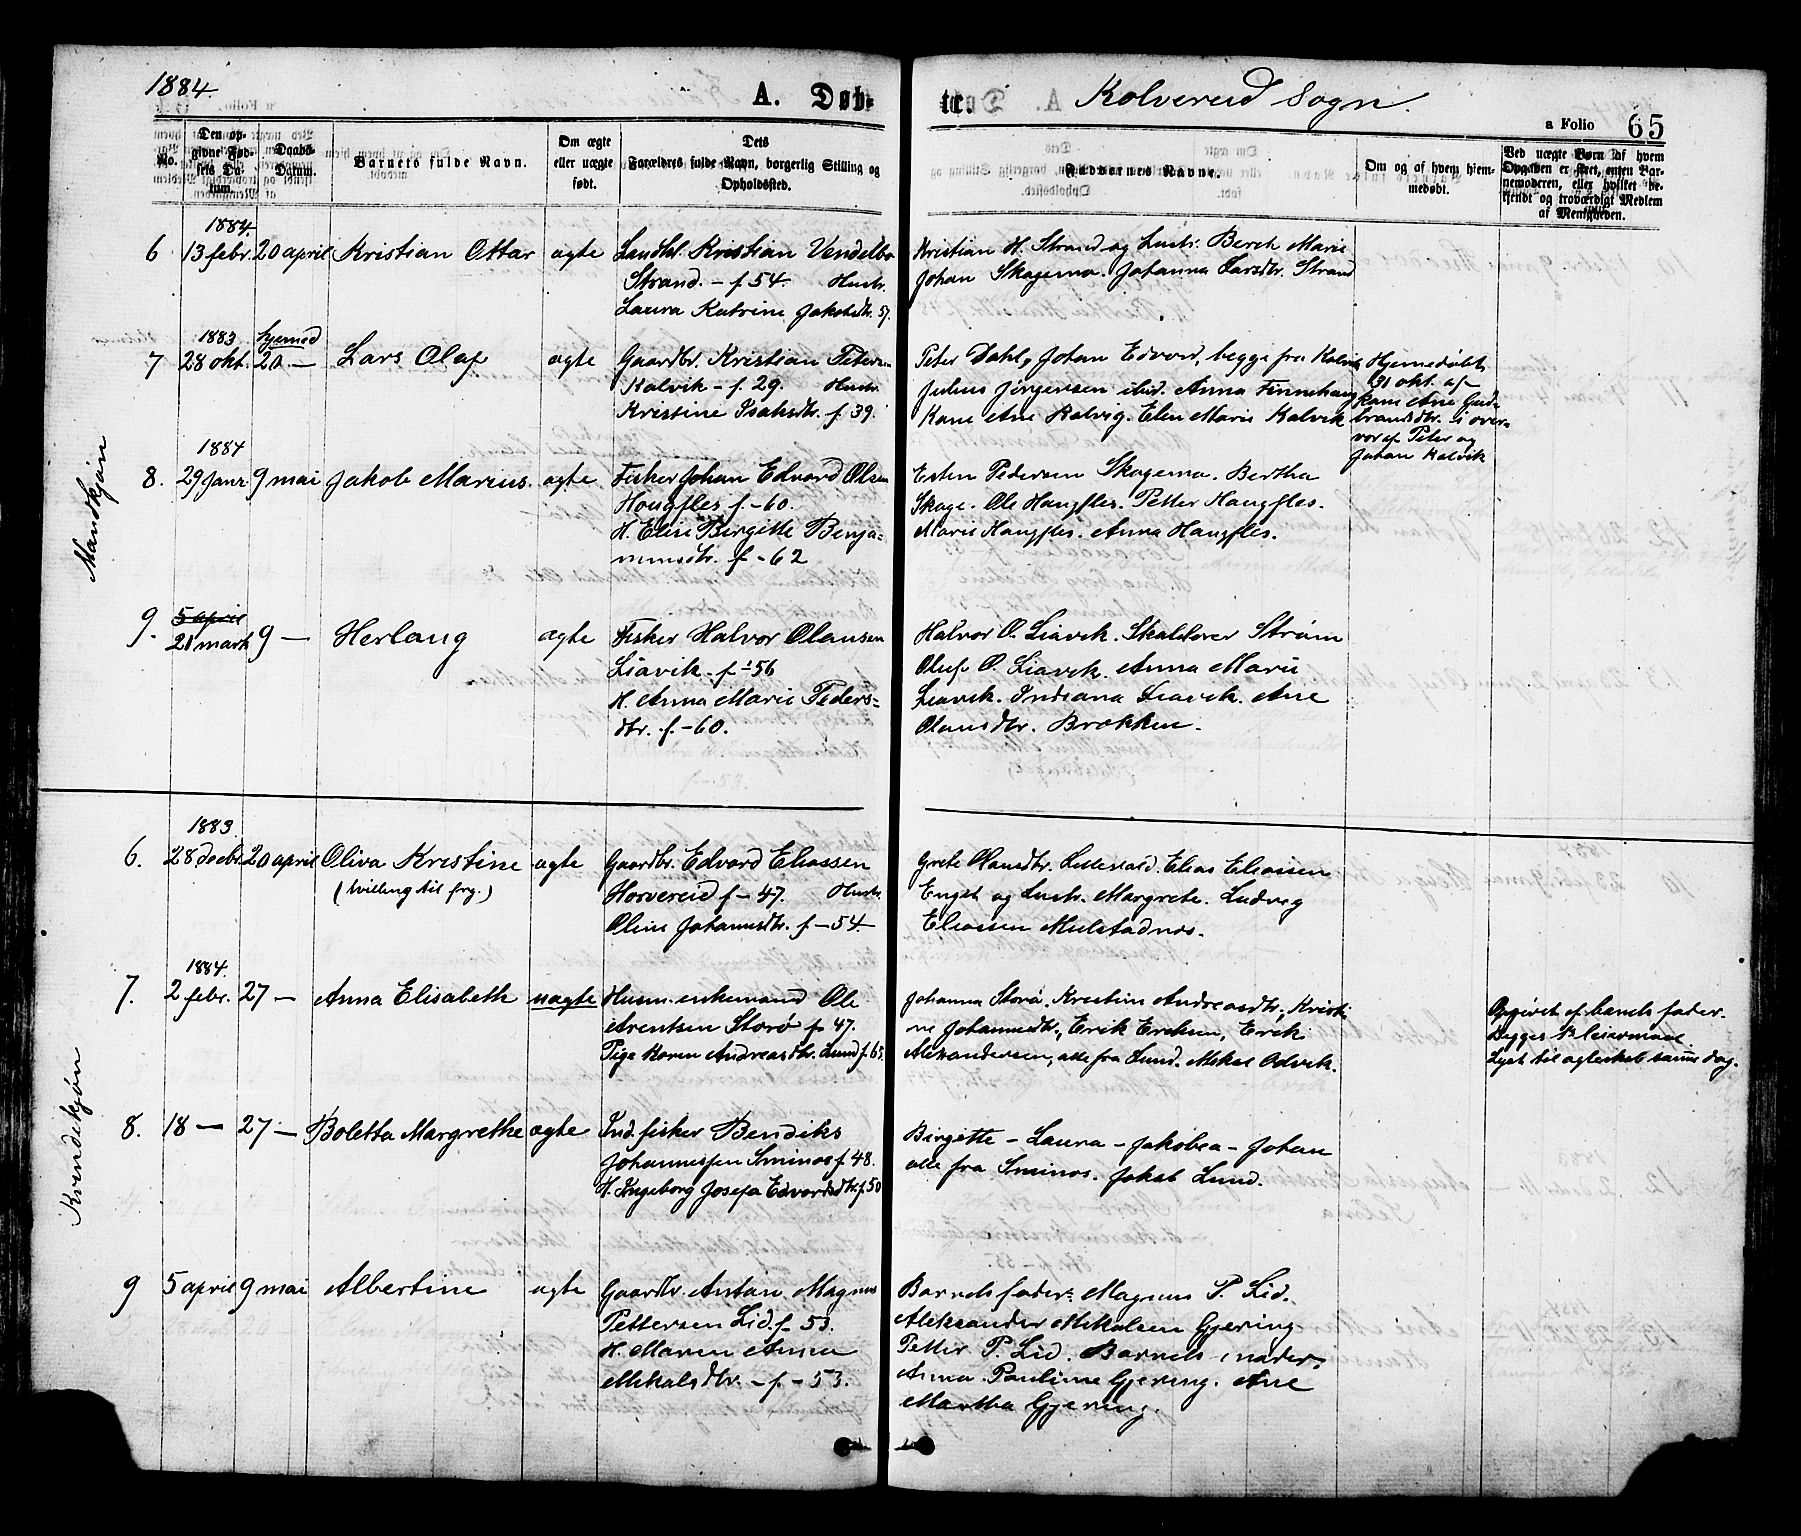 1884.
A. Døb-
te.
Kolvereid Sogn.
a Folio 65
No.
Den op-
givne Fød-
sels Da-
tum.
Daabs-
Datum.
Barnets fulde Navn.
Om ægte
eller uægte
født.
Dets
Forældres fulde Navn, borgerlig Stilling og
Opholdssted.
Faddernes Navne.
Om og af hvem hjem-
medøbt.
Ved uægte Børn af hvem
Opgaven er skeet, enten Bar-
nemoderen, eller hvilket be-
kjendt og troværdigt Medlem
af Menigheden.
Mandkjøn
1884.
6 13 febr. 20 april Kristian Ottar ægte Landhl. Kristian Vendelbo
Strand. – f 54. Hustr.
Laura Katrine Jakobsdtr. 57.
Kristian H. Strand og hustr. Berch Marie
Johan Skagemo. Johanna Larsdtr. Strand
1883 hjemmed
7 28 okt. 20 – Lars Olaf ægte Gaardbr. Kristian Petersen
Kalvik – f. 29. Hustr.
Kristine Isaksdtr. f. 39.
Peter Dahl, Johan Edvard, begge fra Kalvik
Julius Jørgensen ibid. Anna Finnehaug
Kone Ane Kalvig. Elen Marie Kalvik
Hjemmedøbt
31 okt. af
kone Ane Gud-
brandsdtr. i over-
vær af Peter og
Johan Kalvik
1884
8. 29 janr 9 mai Jakob Marius. ægte Fisker Johan Edvard Olsen
Hougfles f. – 60.
H. Elise Birgitte Benja-
minsdtr. f – 62
Esten Pedersen Skagemo. Bertha
Skage. Ole Haugfles. Petter Haugfles.
Marie Haugfles. Anna Haugfles.
5 april
9. 21 marts 9 – Herlaug ægte Fisker Halvor Olausen
Liavik. f – 56
H. Anna Marie Peders-
dtr. f. – 60.
Halvor O. Liavik. Skoldover Strøm
Oluf O. Liavik. Anna Marie
Liavik. Indiana Liavik. Ane
Olausdtr. Brækken.
Kvindekjøn
1883.
6. 28 decbr. 20 april Oliva Kristine ægte Gaardbr. Edvard Eliassen
(tvilling til frg.)
Horvereid f – 47. Hustr.
Oline Johannesdtr. f – 54
Grete Olausdtr. Lillevald. Elias Eliassen
Engset og hustr. Margrete. Ludvig
Eliassen Mulstadnes.
1884.
7. 2 febr. 27 – Anna Elisabeth uægte Husm. enkemand Ole
Arentsen Storø f 47.
Pige Karen Andreasdtr. Lund f. 65.
Johanna Storø. Kristine Andreasdtr., Kristi-
ne Johannesdtr., Erik Eriksen, Erik
Alexandersen, alle fra Lund. Mikal Odvik.
Opgivet af barnets fader.
Begges 1ste leiermaal.
Lyst til ægteskab samme dag.
8. 18 – 27 – Boletta Margrethe ægte Ind. fisker Bendiks
Johannessen Sminos f. 48.
H. Ingeborg Josefa Edvardsdtr f. 50
Birgitte – Laura – Jakobea – Johan
alle fra Sminos. Jakob Lund.
9 5 april 9 mai Albertine ægte Gaardbr. Anton Magnus
Pettersen Lid f – 53.
H. Maren Anna
Mikalsdtr. – f – 53.
Barnets fader: Magnus P. Lid.
Aleksander Mikalsen Gjering
Petter P. Lid. Barnets moder.
Anna Pauline Gjering. Ane
Martha Gjering.